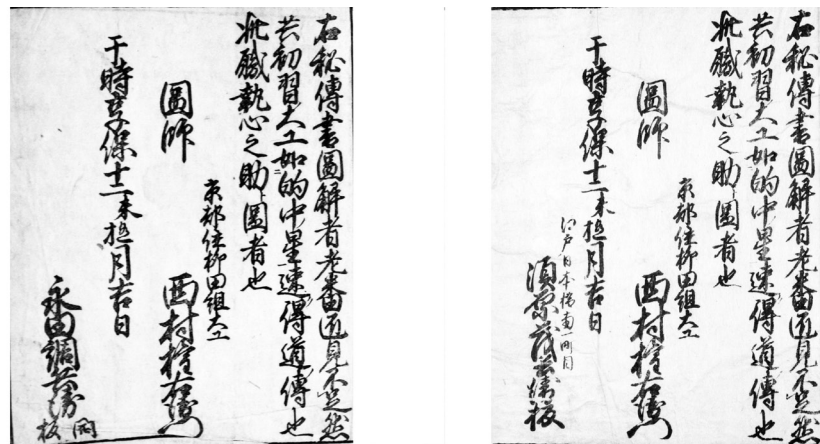 右秘傳書圖解者老番匠見不足然
共初習大工如的中星速得道傳也
此職執心之助圖者也
京都住柳田組大工
圖師 西村權右衛門
于時享保十二未 月吉日
永田調兵衛 板
右秘傳書圖解者老番匠見不足然
共初習大工如的中星速得道傳也
此職執心之助圖者也
京都住柳田組大工
圖師 西村權右衛門
于時享保十二未 月吉日
江戸日本橋南一町目
須原茂兵衛板